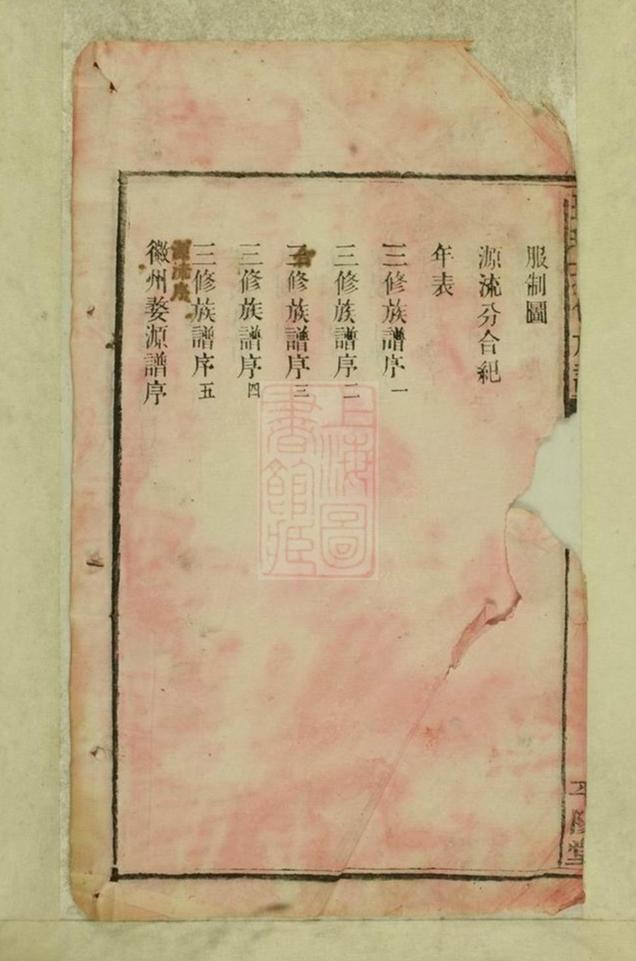 服制圖
源流分合紀
年表
三修族譜序一
三修族譜序二
三修族譜序三
三修族譜序四
三修族譜序五
源流序
徽州婺源譜序
上海圖書館藏
平陽堂